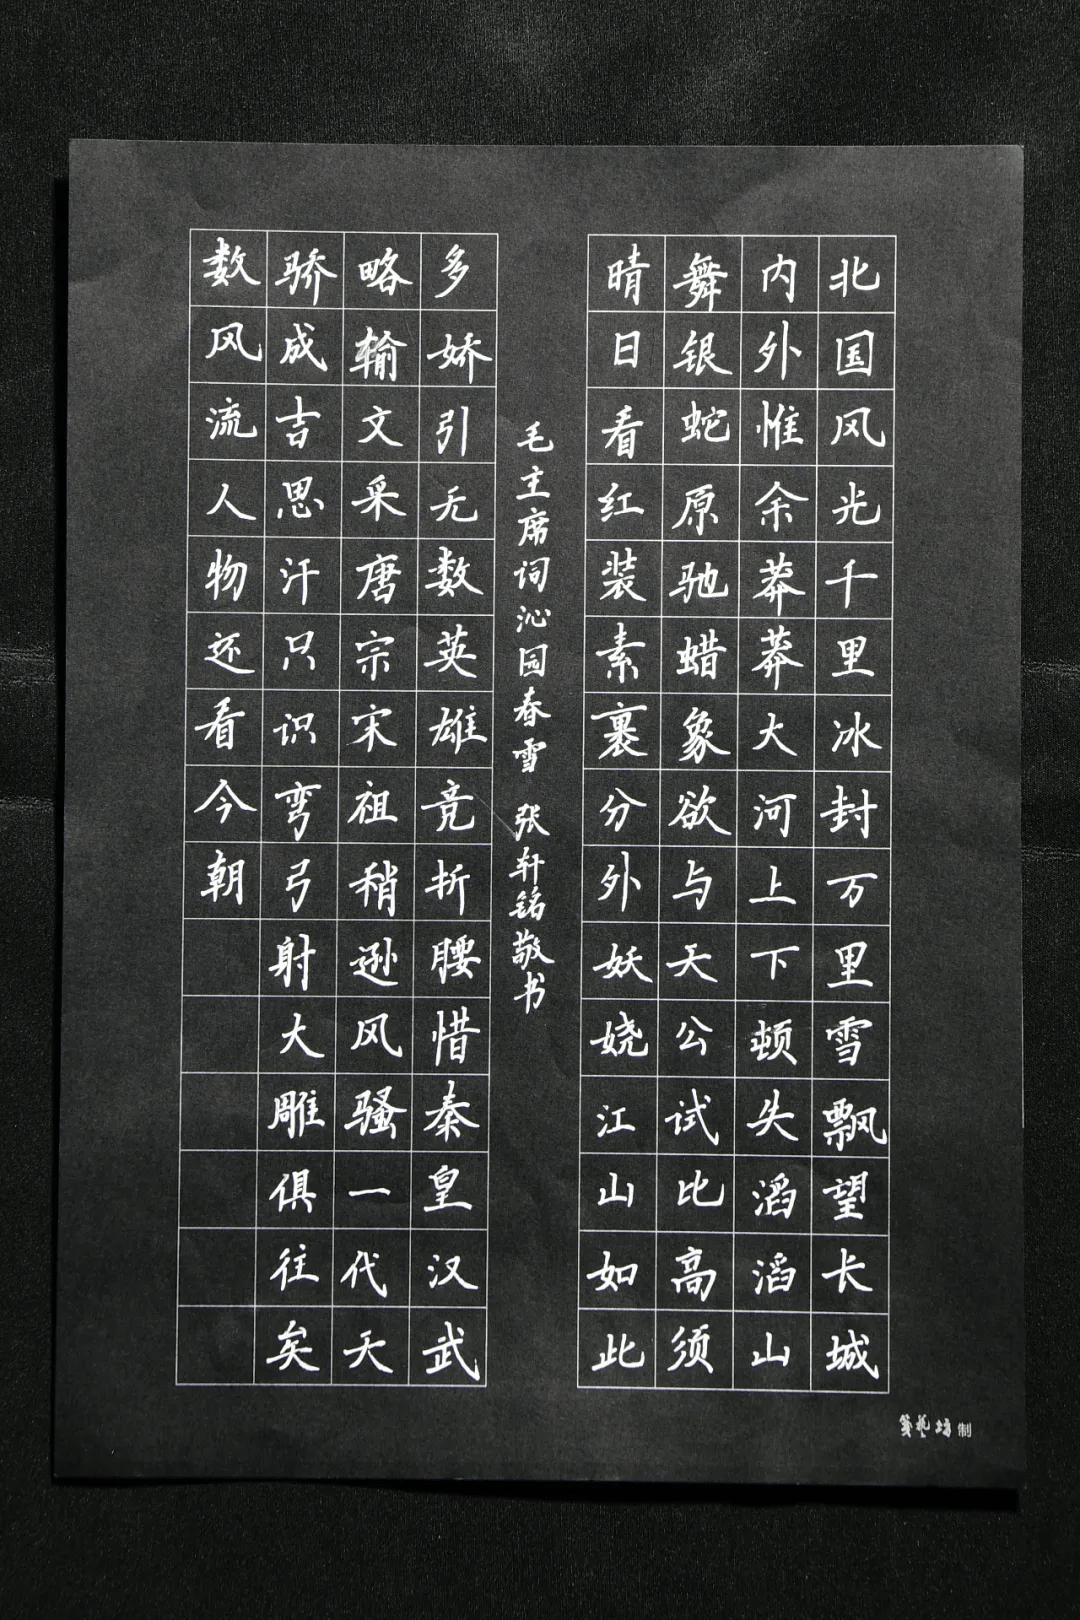 北国风光千里冰封万里雪飘望长城
内外惟余莽莽大河上下顿失滔滔山
舞银蛇原驰蜡象欲与天公试比高须
晴日看红装素裹分外妖娆江山如此
毛主席词沁园春雪 张轩铭敬书
多娇引无数英雄竞折腰惜秦皇汉武
略输文采唐宗宋祖稍逊风骚一代天
骄成吉思汗只识弯弓射大雕俱往矣
数风流人物还看今朝
笺艺坊制